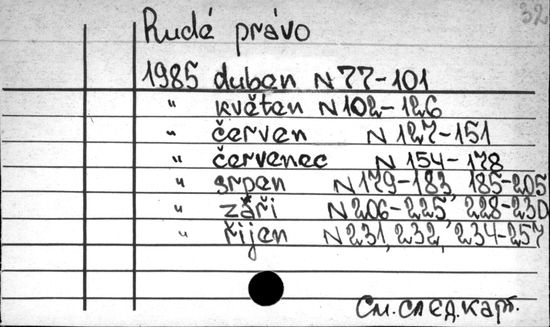 32
Rudé právo
1985 duben N 77-101
" květen N 102-126
" červen N 127-151
" červenec N 154-178
" srpen N 179-183, 185-205
" září N 206-225, 228-230
" říjen N 231, 232, 234-257
См. след. карт.